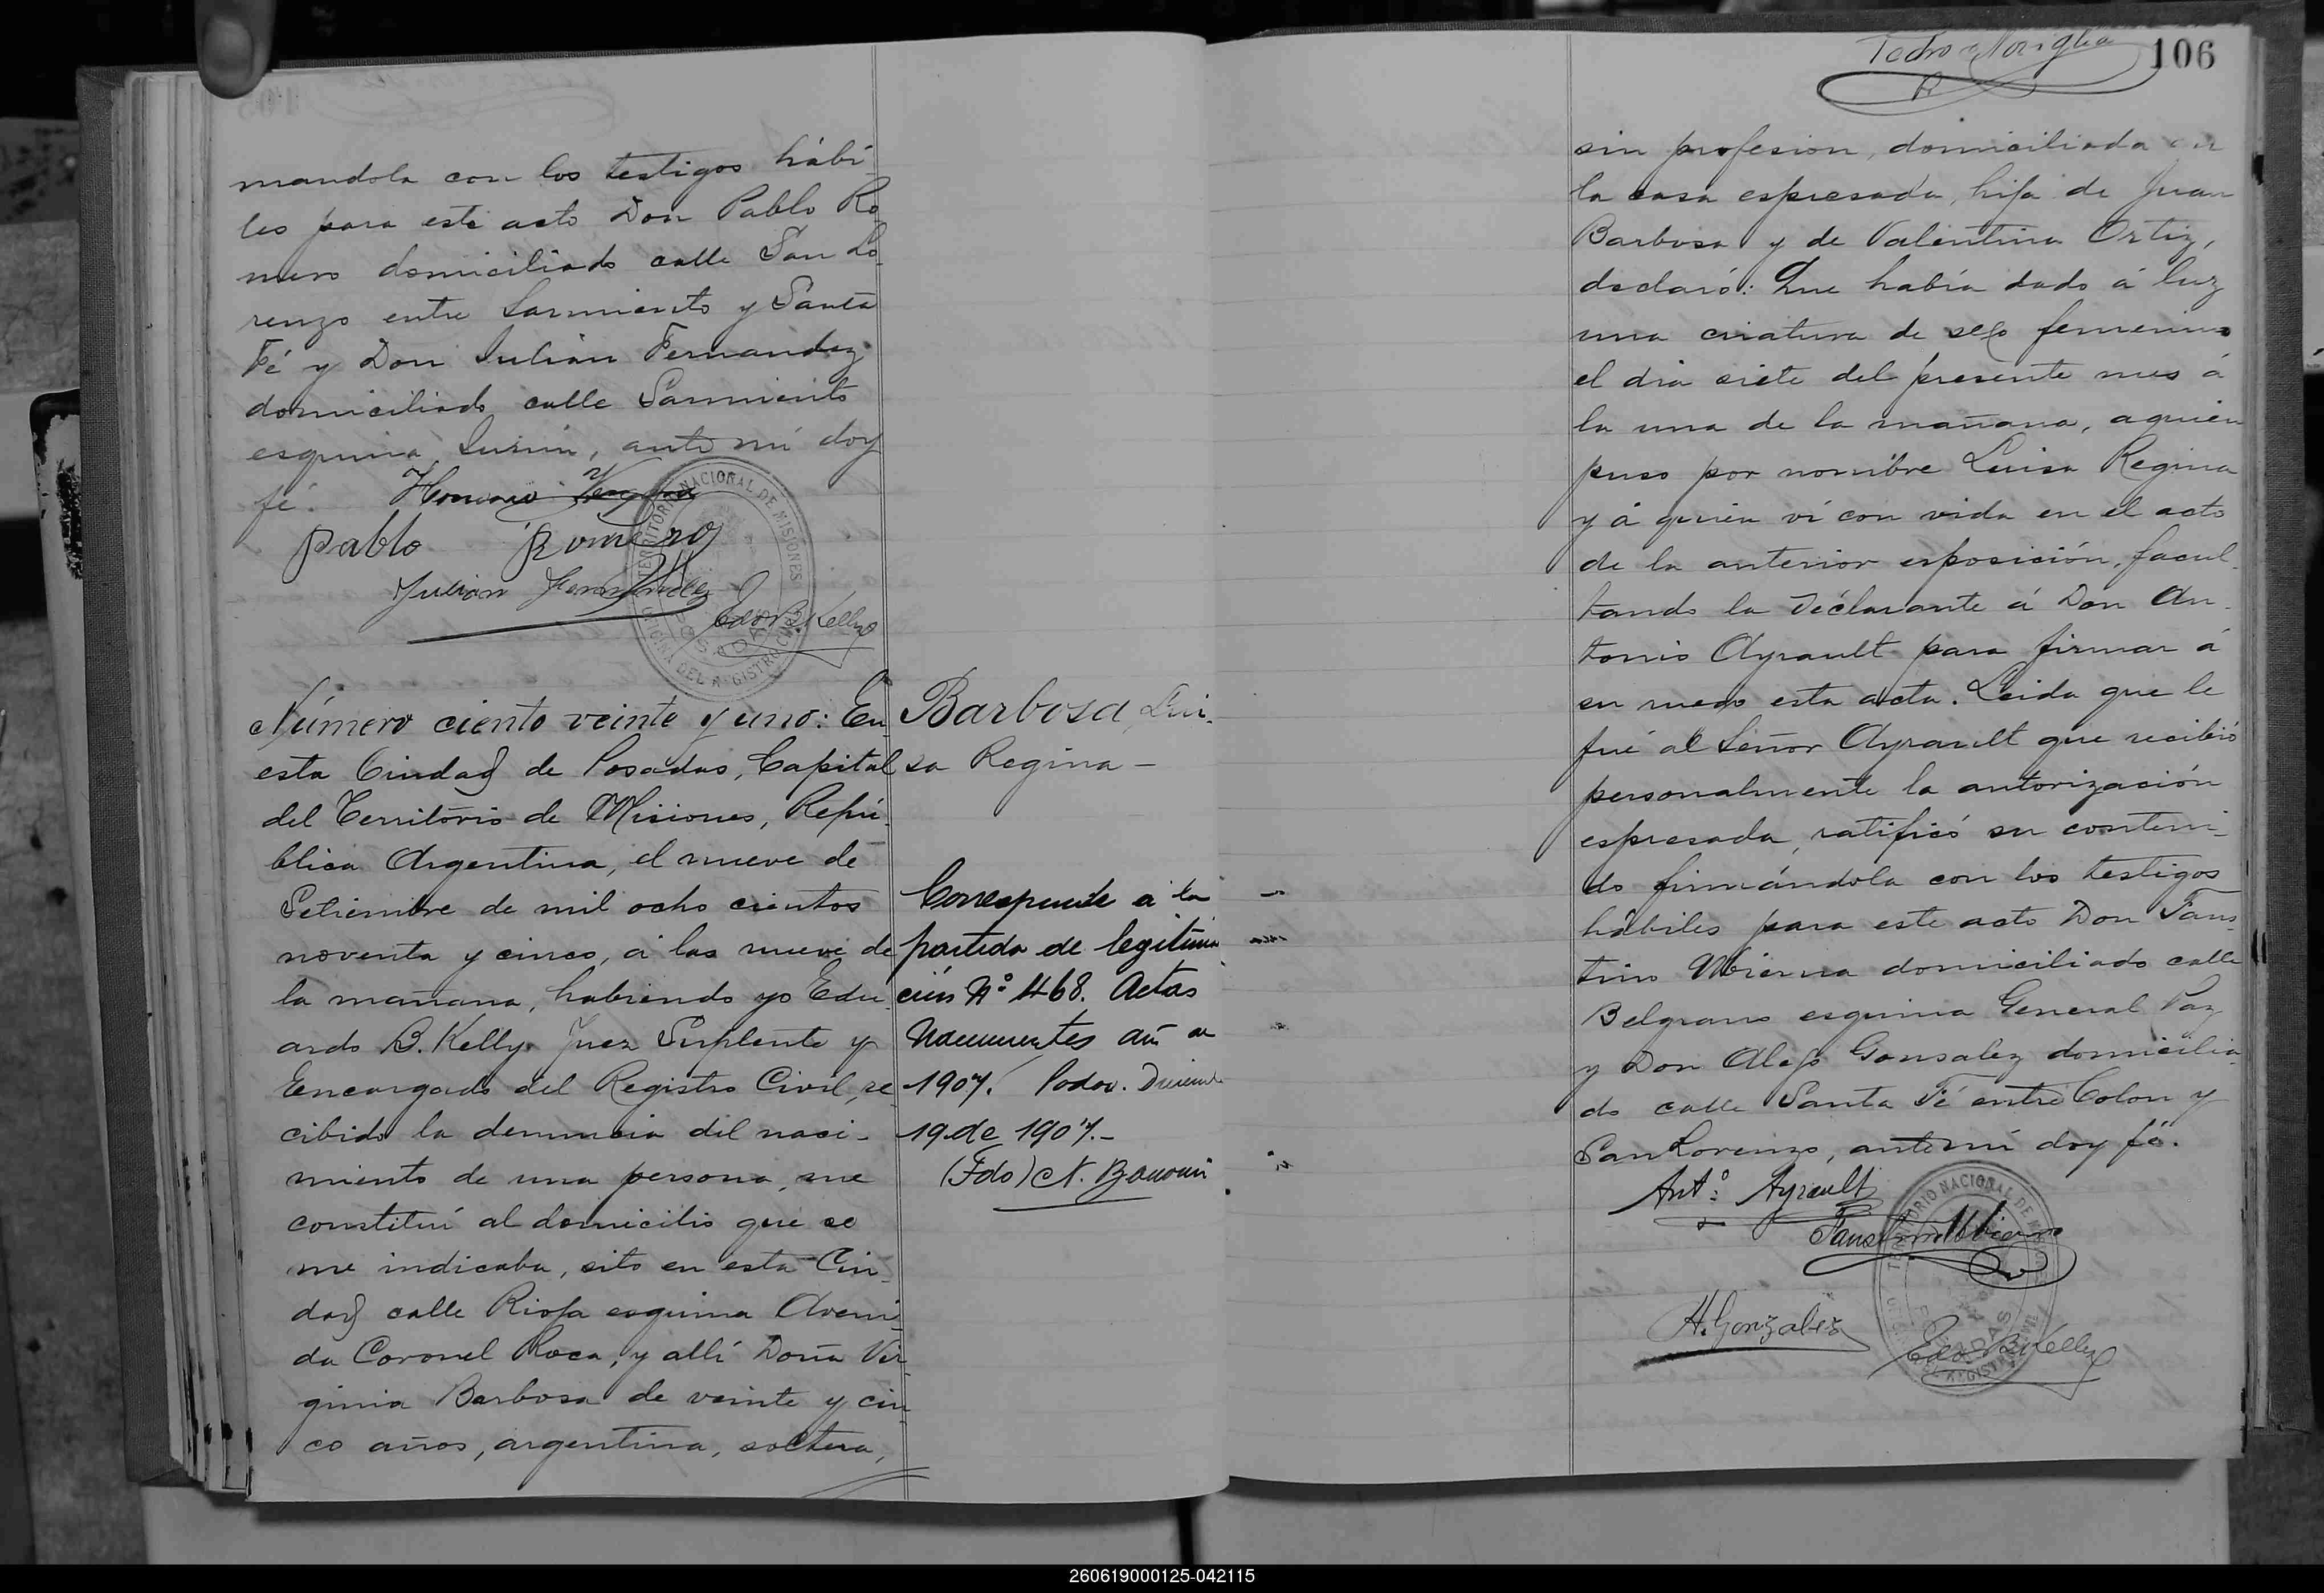 mandola con los testigos hábi-
les para este acto Don Pablo Ro-
mero domiciliado calle San Lo-
renzo entre Sarmiento y Santa
Fé y Don Julian Fernandez
domiciliado calle Sarmiento
esquina Junin, ante mí doy
fé.
Pablo Romero
Julian Fernandez
Edo B. Kelly
TERRITORIO NACIONAL DE MISIONES
OFICINA DEL REGISTRO CIVIL
POSADAS
Número ciento veinte y uno: En
esta Ciudad de Posadas, Capital
del Territorio de Misiones, Repú-
blica Argentina, el nueve de
Setiembre de mil ocho cientos
noventa y cinco, á las nueve de
la mañana, habiendo yo Edu-
ardo B. Kelly Juez Suplente y
Encargado del Registro Civil, re-
cibido la denuncia del naci-
miento de una persona, me
constituí al domicilio que se
me indicaba, sito en esta Ciu-
dad calle Rioja esquina Aveni-
da Coronel Roca, y allí Doña Vir-
ginia Barbosa de veinte y cin-
co años, argentina, soltera,
Barbosa, Lui-
sa Regina —
Corresponde a la
partida de legitima
ción Nº 468. Actas
Nacimientos año de
1907. Posdas. Diciembre
19 de 1907.-
(Fdo) N.
106
Pedro Noriglia
sin profesion, domiciliada en
la casa espresada, hija de Juan
Barbosa y de Valentina Ortiz,
declaró: Que había dado á luz
una criatura de sexo femenino
el dia siete del presente mes á
la una de la mañana, aquien
puso por nombre Luisa Regina
y á quien ví con vida en el acto
de la anterior esposición, facul-
tando la declarante á Don An-
tonio Ayrault para firmar á
su ruego esta acta. Leida que le
fué al Señor Ayrault que recibió
personalmente la autorización
espresada, ratificó su conteni-
do firmándola con los testigos
hábiles para este acto Don Faus-
tino Ubierna domiciliado calle
Belgrano esquina General Paz
y Don Alejo Gonsalez domicilia-
do calle Santa Fé entre Colon y
San Lorenzo, ante mí doy fé.
Antº: Ayrault
Faustino Ubierna
A. Gonzalez
Edo B. Kelly
TERRITORIO NACIONAL DE
POSADAS
260619000125-042115